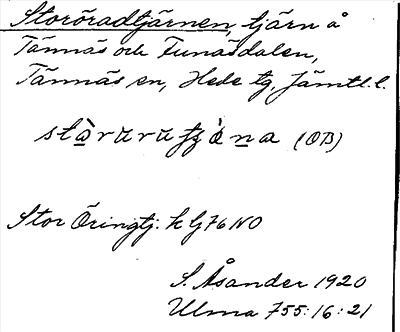 Storöradtjärnen, tjärn å
Tännäs och Funäsdalen,
Tännäs sn, Hede tg, Jämtl. l.
(OB)
Stor Öringtj. k Lj 76 NO
S. Åsander 1920
Ulma 755:16:21